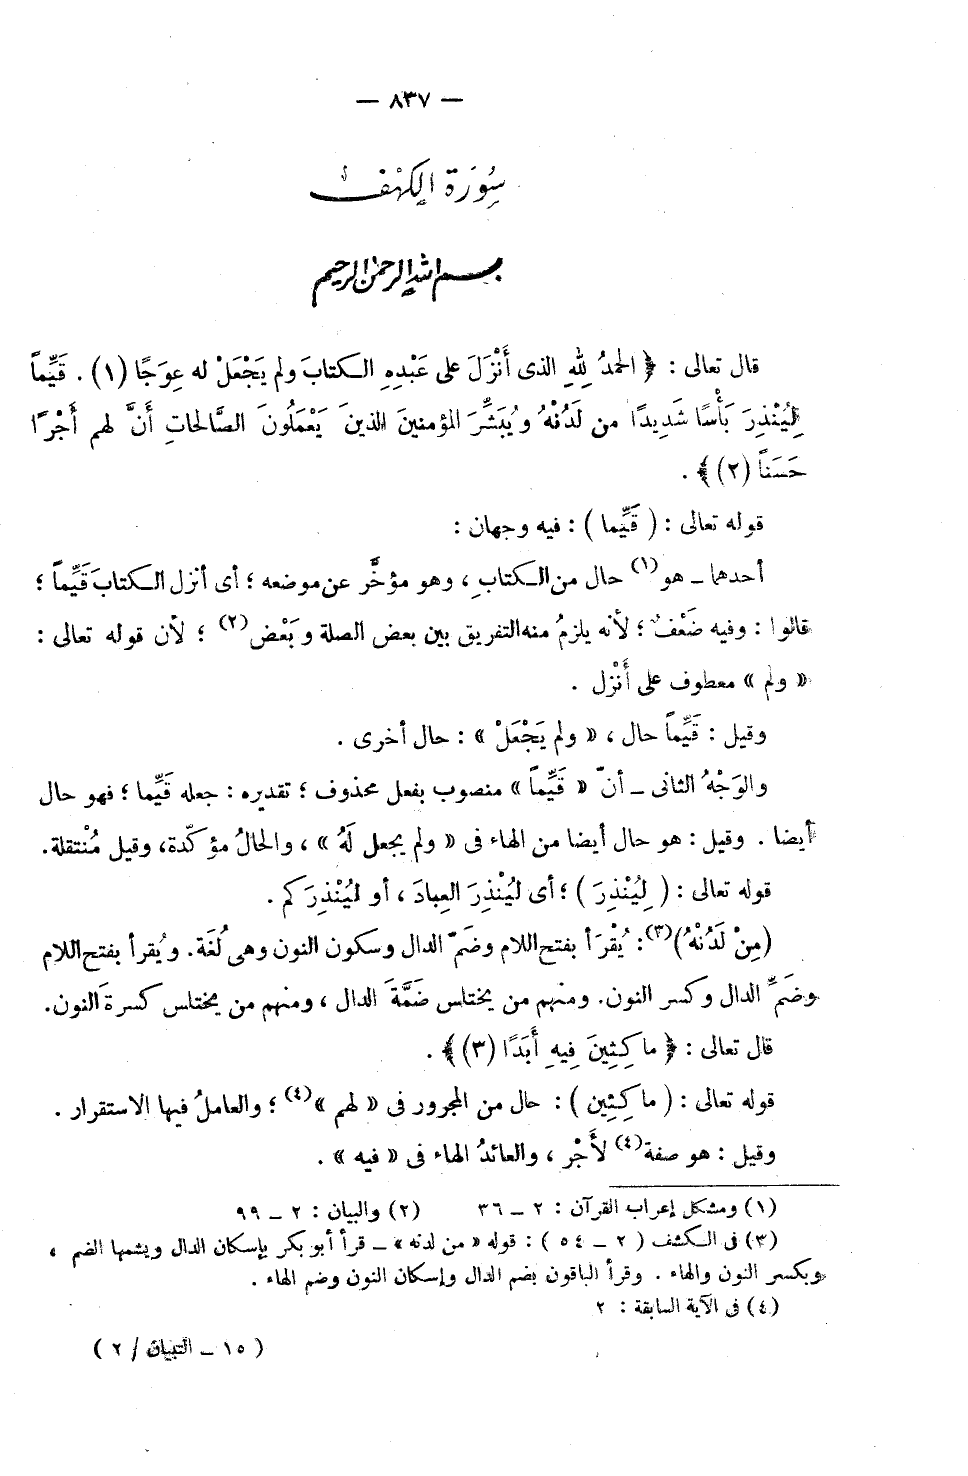 — ٨٣٧ —
سُورَة الكهْف
بسم الله الرحمن الرحيم
قال تعالى : ﴿ الحمدُ لِلهِ الذى أَنْزَلَ على عَبْدِهِ الـكتابَ ولم يَجْعَلْ له عِوَجًا (١) . قَيِّماً
لِيُنْذِرَ بَأْسًا شَدِيدًا من لَدُنْهُ ويُبَشِّرَ المؤمنينَ الذينَ يَعْمَلُونَ الصَّالحاتِ أَنَّ لهم أَجْرًا
حَسَناً (٢) ﴾ .
قوله تعالى : ( قَيِّما ) : فيه وجهان :
أحدهما ـ هو(١) حال من الـكتابِ ، وهو مؤخَّر عن موضعه ؛ أى أنزل الـكتابَ قَيِّماً ؛
قالوا : وفيه ضَعْف ؛ لأنه يلزمُ منه التفريق بين بعض الصلة وبَعْض(٢) ؛ لأن قوله تعالى :
« ولم » معطوف على أَنْزل .
وقيل : قَيِّماً حال ، « ولم يَجْعَلْ » : حال أخرى .
والوَجْهُ الثانى ـ أنّ « قَيِّماً » منصوب بفعل محذوف ؛ تقديره : جعله قَيِّما ؛ فهو حال
أيضا . وقيل : هو حال أيضا من الهاء فى « ولم يجعل لَهُ » ، والحالُ مؤكّدة، وقيل مُنْتقلة.
قوله تعالى : ( لِيُنْذِرَ ) ؛ أى لِيُنْذِرَ العِبادَ ، أو لِيُنْذِرَكم .
(مِنْ لَدُنْهُ)(٣): يُقْرَأ بفتح اللام وضَمّ الدال وسكون النون وهى لُغَة. ويُقرأ بفتح اللام
وضَمِّ الدال وكسر النون. ومنهم من يختلس ضَمَّةَ الدال ، ومنهم من يختلس كسرةَ النون.
قال تعالى : ﴿ ماكِثِينَ فِيهِ أَبَدًا (٣) ﴾ .
قوله تعالى : ( ماكِثِين ) : حال من المجرور فى « لهم »(٤) ؛ والعاملُ فيها الاستقرار .
وقيل : هو صفة(٤) لأَجْر ، والعائدُ الهاء فى « فيه » .
(١) ومشكل إعراب القرآن : ٢ ـ ٣٦ (٢) والبيان : ٢ ـ ٩٩
(٣) فى الـكشف ( ٢ ـ ٥٤ ) : قوله « من لدنه » ـ قرأ أبو بكر بإسكان الدال ويشمها الضم ،
وبكسر النون والهاء . وقرأ الباقون بضم الدال وإسكان النون وضم الهاء .
(٤) فى الآية السابقة : ٢
( ١٥ ـ التبيان / ٢ )